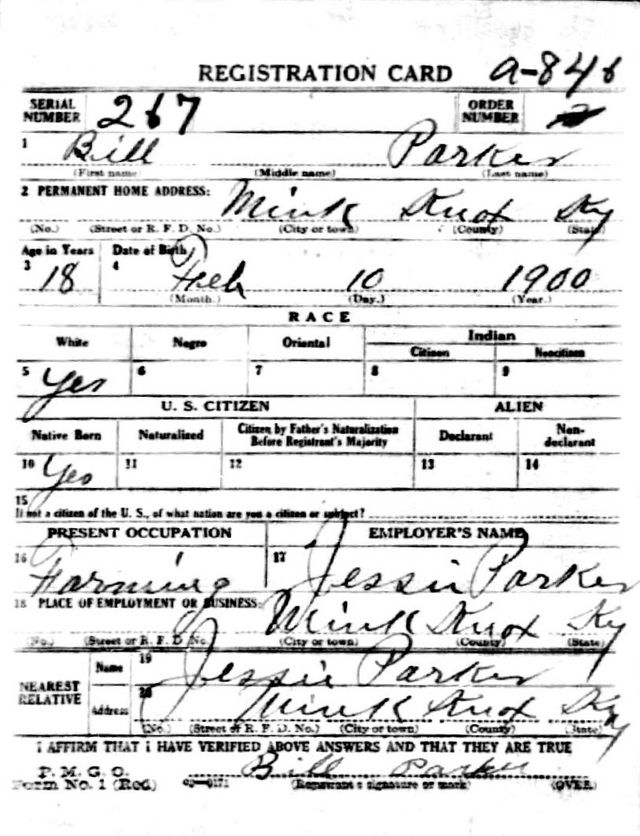 REGISTRATION CARD a-846
SERIAL NUMBER 267 ORDER NUMBER
1 Bill Parker
(First name) (Middle name) (Last name)
2 PERMANENT HOME ADDRESS: Mink Knox Ky
(No.) (Street or R. F. D. No.) (City or town) (County) (State)
Age in Years Date of Birth
3 18 4 Feb 10 1900
(Month.) (Day.) (Year.)
RACE
White Negro Oriental Indian
Citizen Noncitizen
5 Yes 6 7 8 9
U. S. CITIZEN ALIEN
Native Born Naturalized Citizen by Father's Naturalization Before Registrant's Majority Declarant Non-declarant
10 Yes 11 12 13 14
15
If not a citizen of the U. S., of what nation are you a citizen or subject?
PRESENT OCCUPATION EMPLOYER'S NAME
16 Farming 17 Jessie Parker
18 PLACE OF EMPLOYMENT OR BUSINESS: Mink Knox Ky
(No.) (Street or R. F. D. No.) (City or town) (County) (State)
NEAREST RELATIVE Name 19 Jessie Parker
Address 20 Mink Knox Ky
(No.) (Street or R. F. D. No.) (City or town) (County) (State)
I AFFIRM THAT I HAVE VERIFIED ABOVE ANSWERS AND THAT THEY ARE TRUE
P. M. G. O.
Form No. 1 (Red) Bill Parker
(Registrant's signature or mark) (OVER)